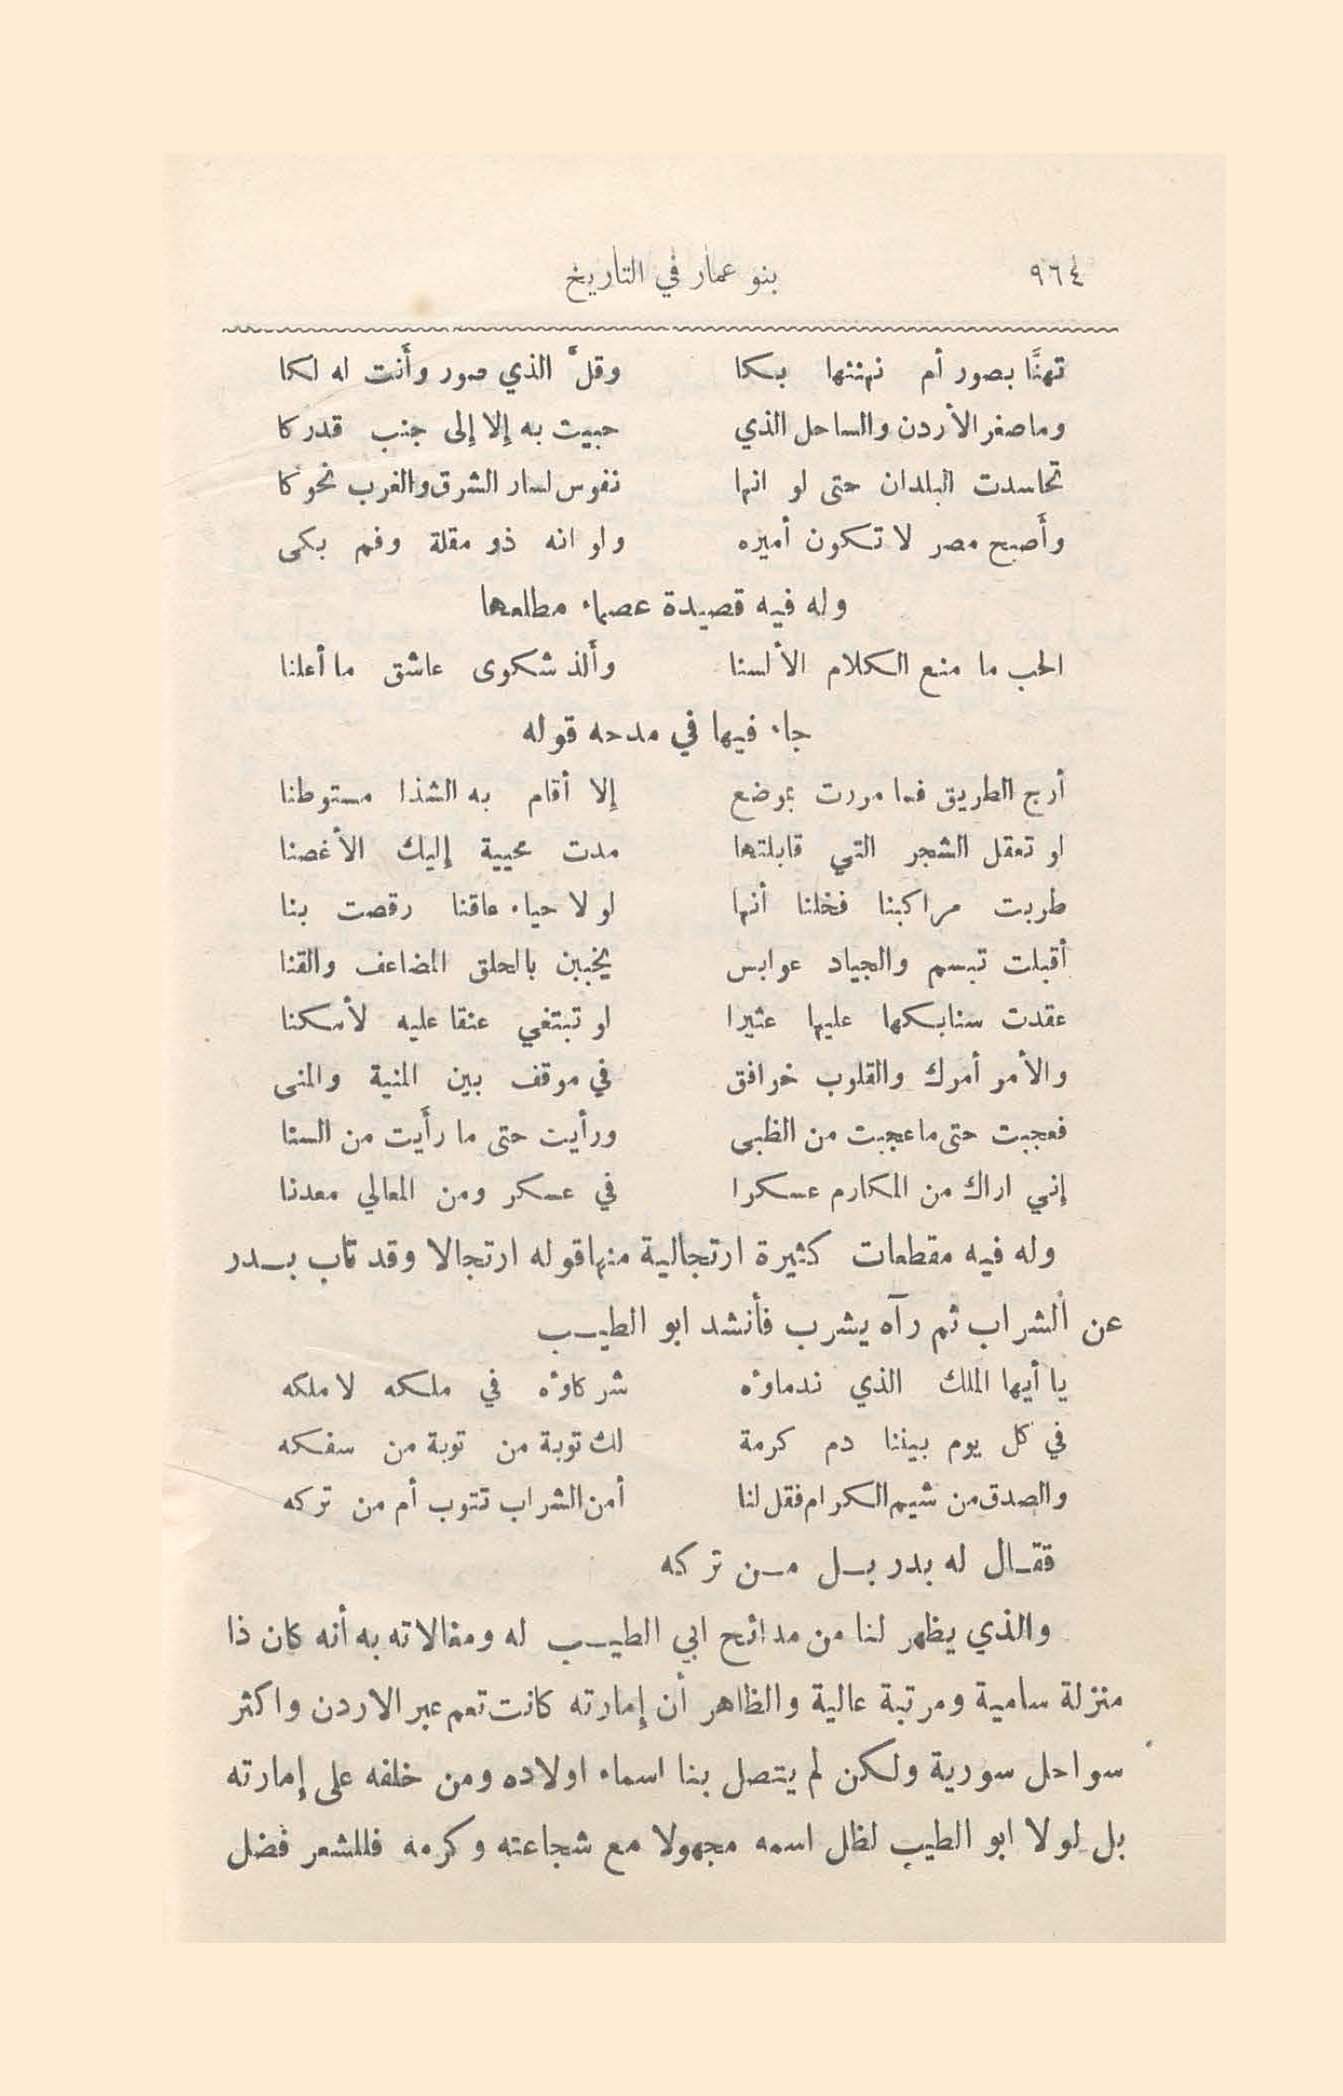 ٩٦٤ بنو عمار في التاريخ
تهنَّا بصور أم نهنئها بكا وقلَّ الذي صور وأنت له لكا
وما صغر الأردن والساحل الذي حبيت به إلا إلى جنب قدركا
تحاسدت البلدان حتى لو انها نفوس لسار الشرق والغرب نحوكا
وأصبح مصر لا تكون أميره ولو انه ذو مقلة وفم بكى
وله فيه قصيدة عصماء مطلعها
الحب ما منع الكلام الألسنا وألذ شكوى عاشق ما أعلنا
جاء فيها في مدحه قوله
أرج الطريق فما مررت بموضع إلا أقام به الشذا مستوطنا
لو تعقل الشجر التي قابلتها مدت محيية إليك الأغصنا
طربت مراكبنا فخلنا أنها لولا حياء عاقنا رقصت بنا
أقبلت تبسم والجياد عوابس يخببن بالحلق المضاعف والقنا
عقدت سنابكها عليها عثيرا لو تبتغي عنقا عليه لأمكنا
والأمر أمرك والقلوب خوافق في موقف بين المنية والمنى
فعجبت حتى ما عجبت من الظبى ورأيت حتى ما رأيت من السنا
إني اراك من المكارم عسكرا في عسكر ومن المعالي معدنا
وله فيه مقطعات كثيرة ارتجالية منها قوله ارتجالا وقد تاب بدر
عن الشراب ثم رآه يشرب فأنشد ابو الطيب
يا أيها الملك الذي ندماؤه شركاؤه في ملكه لا ملكه
في كل يوم بيننا دم كرمة لك توبة من توبة من سفكه
والصدق من شيم الكرام فقل لنا أمن الشراب تتوب أم من تركه
فقال له بدر بل من تركه
والذي يظهر لنا من مدائح ابي الطيب له ومغالاته به أنه كان ذا
منزلة سامية ومرتبة عالية والظاهر أن إمارته كانت تعم عبر الاردن واكثر
سواحل سورية ولكن لم يتصل بنا اسماء اولاده ومن خلفه على إمارته
بل لولا ابو الطيب لظل اسمه مجهولا مع شجاعته وكرمه فللشعر فضل